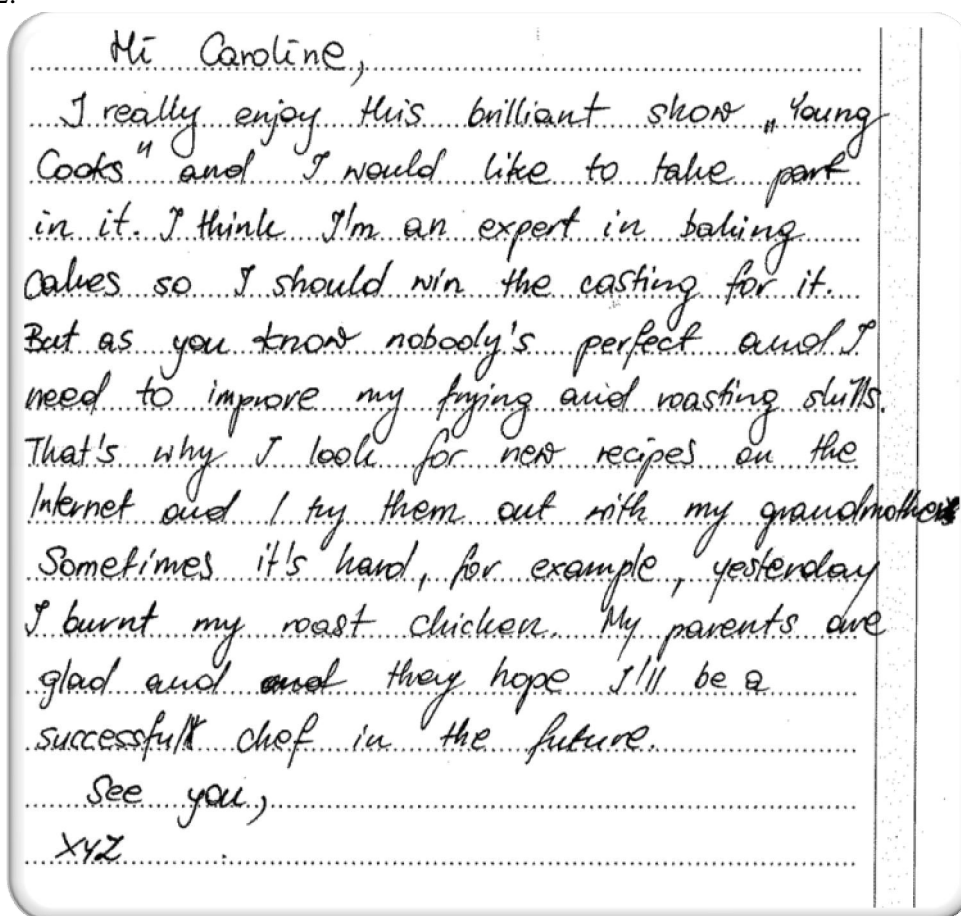 2.
Hi Caroline,
I really enjoy this brilliant show „Young
Cooks" and I would like to take part
in it. I think I'm an expert in baking
cakes so I should win the casting for it.
But as you know nobody's perfect and I
need to improve my frying and roasting skills.
That's why I look for new recipes on the
Internet and I try them out with my grandmother.
Sometimes it's hard, for example, yesterday
I burnt my roast chicken. My parents are
glad and they hope I'll be a
successful chef in the future.
See you,
XYZ